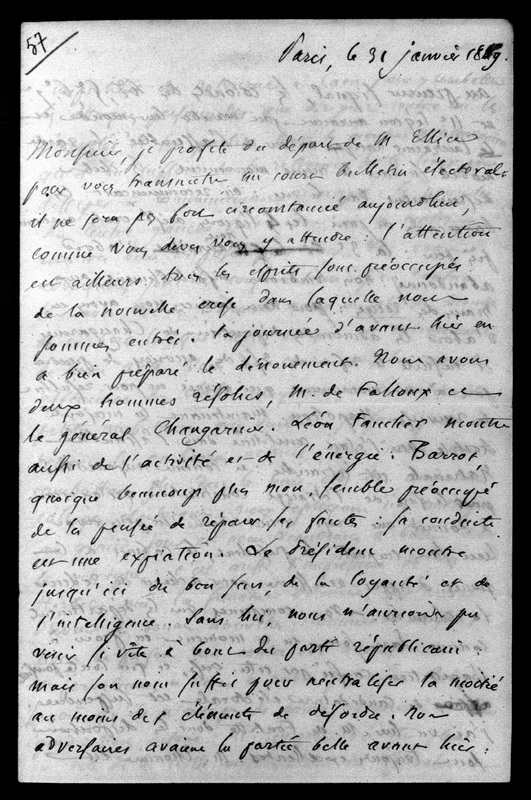 57
Paris, le 31 janvier 1849.
Monsieur, je profite du départ de M Ellice
pour vous transmettre un court bulletin électoral :
il ne sera pas bon circonstancié aujourd'hui,
comme vous devez vous y attendre : l'attention
est ailleurs tous les esprits sont préoccupés
de la nouvelle crise dans laquelle nous
sommes entrés. la journée d'avant hier en
a bien préparé le dénouement. Nous avons
deux hommes résolus, M. de Falloux et
le général Changarnier. Léon Faucher montre
aussi de l'activité et de l'énergie. Barrot,
quoique beaucoup plus mou, semble préoccupé
de la pensée de réparer ses fautes : sa conduite
est une expiation. Le Président montre
jusqu'ici du bon sens, de la loyauté et de
l'intelligence. Sans lui, nous n'aurions pu
venir si vite à bout du parti républicain :
mais son nom suffit pour neutraliser la moitié
au moins des éléments de désordre. Nos
adversaires avaient la partie belle avant hier :